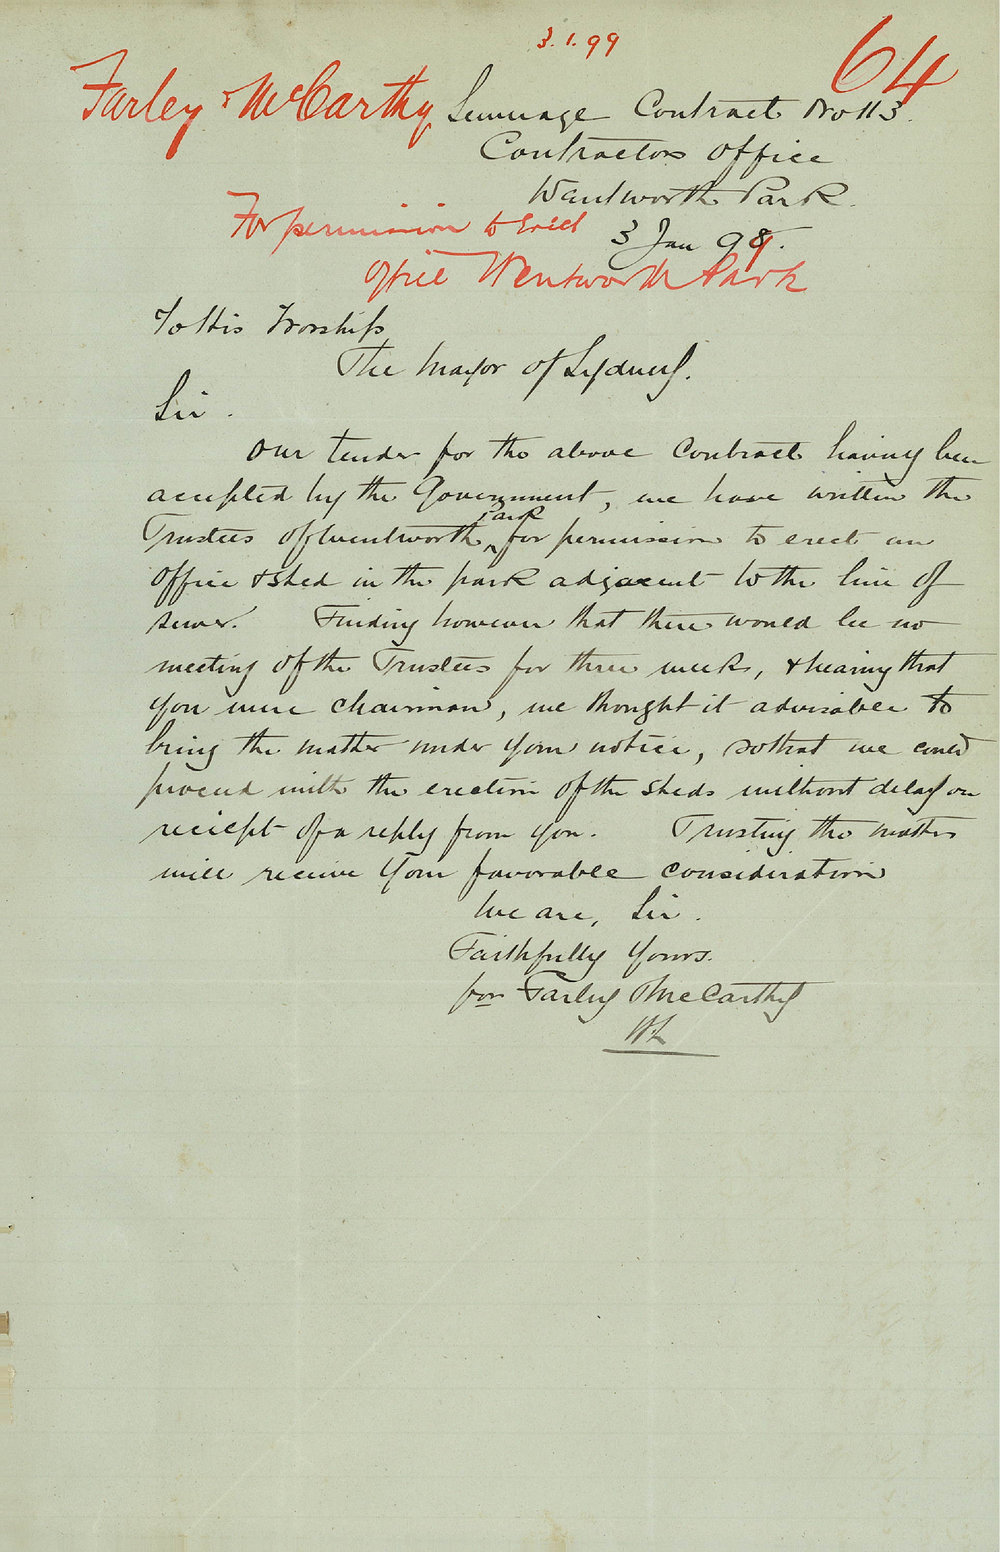 3.1.99
64
Farley & McCarthy
Sewerage Contract No 113.
Contractors Office
Wentworth Park.
For permission to Erect
3 Jan 98.
Office Wentworth Park
To His Worship
The Mayor of Sydney.
Sir.
Our tender for the above Contract having been
accepted by the Government, we have written the
Park
Trustees of Wentworth ^ for permission to erect an
Office & shed in the park adjacent to the line of
sewer. Finding however that there would be no
meeting of the Trustees for three weeks, & hearing that
you were chairman, we thought it advisable to
bring the matter under your notice, so that we could
proceed with the erection of the sheds without delay on
reciept of a reply from you. Trusting the matter
will receive your favorable consideration
We are, Sir.
Faithfully Yours.
for Farley & McCarthy